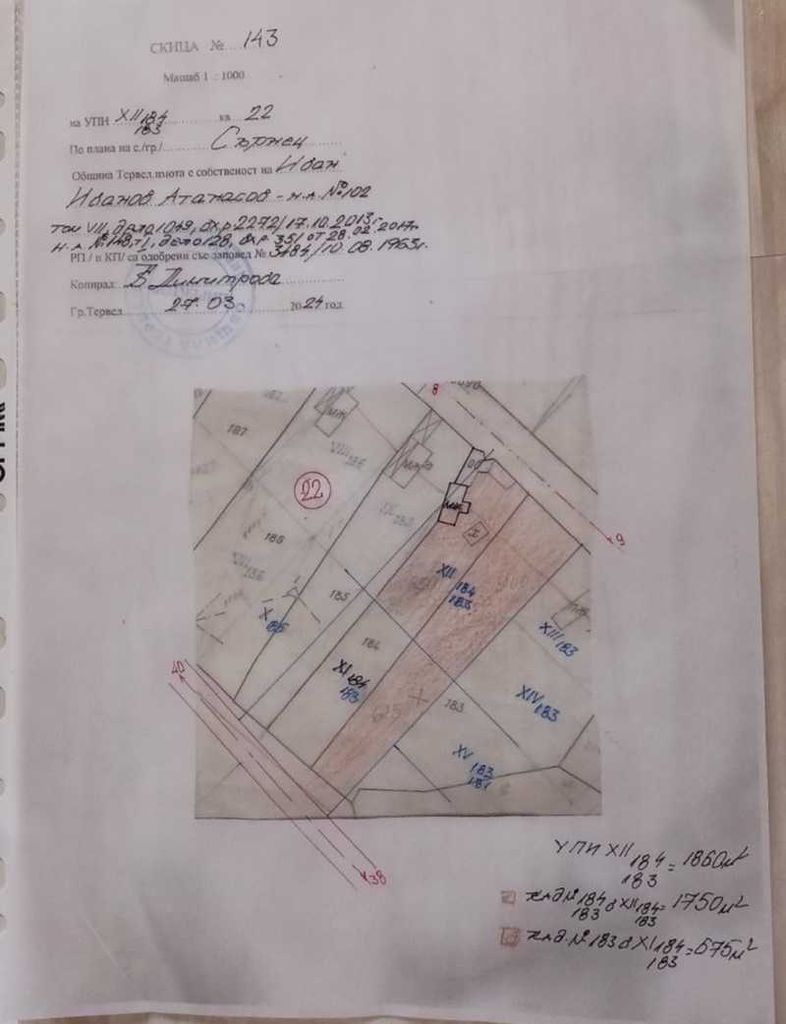 СКИЦА № 143
Машаб 1 : 1000
на УПИ XII 184 кв 22
183
По плана на с./гр./ Сърнец
Община Тервел.имота е собственост на Иван
Иванов Атанасов - н.а. №102
том VII, дело 1049, вх.р 2272/17.10.2013г
н.а №148, т I, дело 128, вх.р 351 от 28.02.2017г.
РП / и КП/ са одобрени със заповед № 3484/10.08.1963г.
Копирал: В Димитрова
Гр.Тервел 27.03 2024 год.
8
187
МЖ
VIII 186
22
МЖ
9
186
XII
184
183
185
X
184
XIII 183
XI 184
183
XIV 183
40
183
675
XV 183
181
38
УПИ XII 184 = 1860м²
183
184 XII 184 = 1750м²
183 183
№ 183 XI 184 = 675м²
183